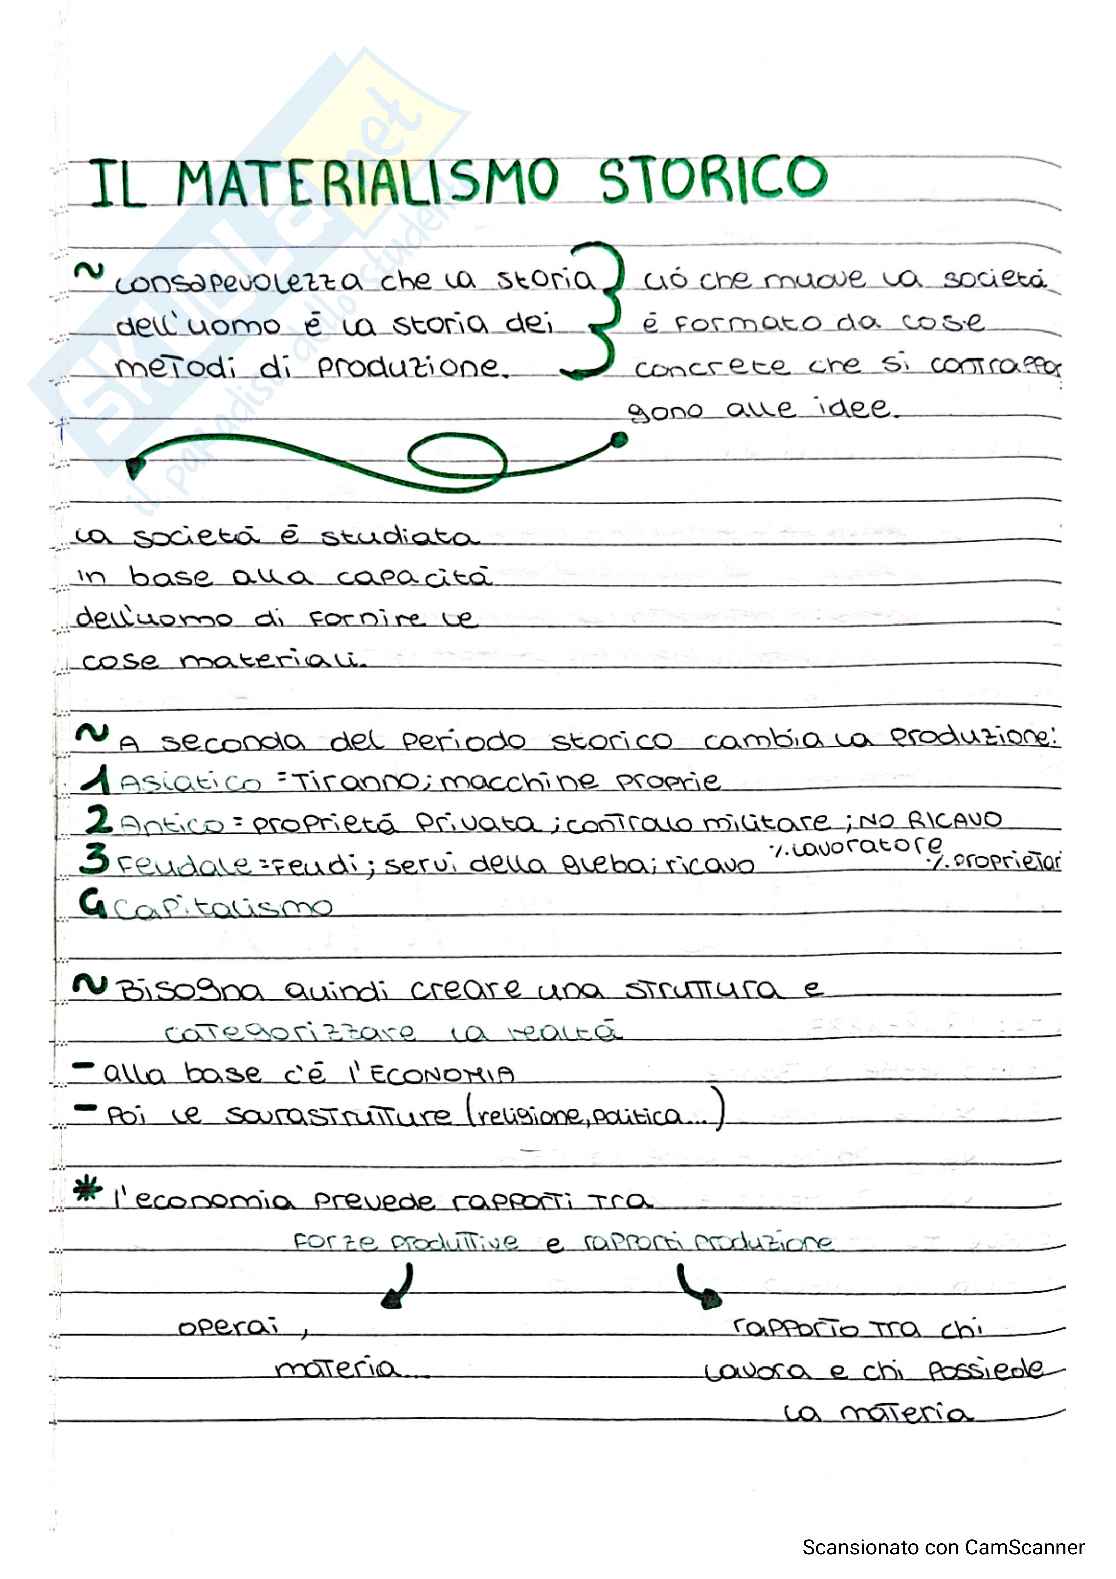 IL MATERIALISMO STORICO
~ consapevolezza che la storia
dell'uomo è la storia dei
metodi di produzione.
ciò che muove la società
è formato da cose
concrete che si contrappon
gono alle idee.
la società è studiata
in base alla capacità
dell'uomo di fornire le
cose materiali.
~ A seconda del periodo storico cambia la produzione:
1 Asiatico = Tiranno; macchine proprie
2 Antico = proprietà privata; controllo militare; NO RICAVO
3 Feudale = Feudi; servi della gleba; ricavo % lavoratore
% proprietari
4 Capitalismo
~ Bisogna quindi creare una struttura e
categorizzare la realtà
- alla base c'è l'ECONOMIA
- Poi le sovrastrutture (religione, politica...)
* l'economia prevede rapporti tra
forze produttive e rapporti produzione
operai,
materia...
rapporto tra chi
lavora e chi possiede
la materia
SKUOLA.net
il paradiso dello studente
Scansionato con CamScanner